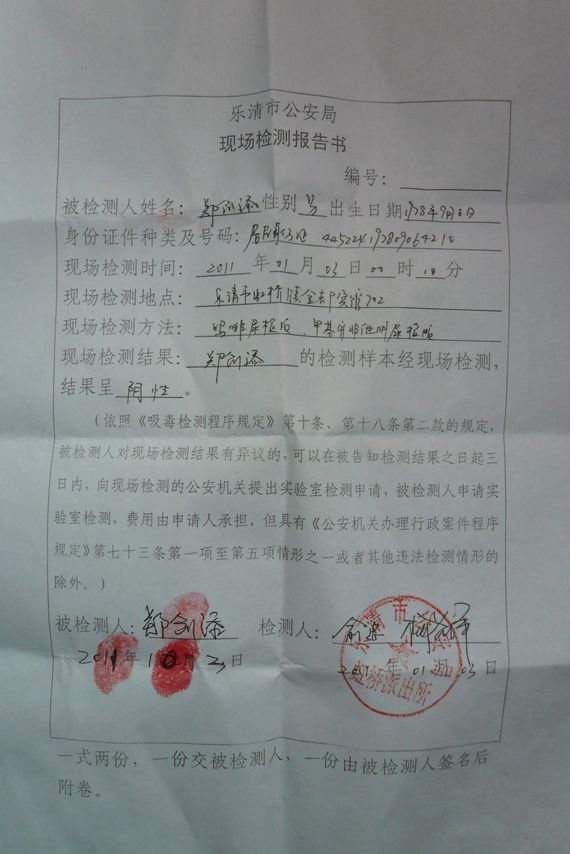 乐清市公安局
现场检测报告书
编号：
被检测人姓名：郑剑添 性别 男 出生日期 1978年9月6日
身份证件种类及号码：居民身份证
现场检测时间：2011年01月03日00时10分
现场检测地点：乐清市虹桥镇金都宾馆702
现场检测方法：吗啡尿检板、甲基安非他明尿检板
现场检测结果：郑剑添 的检测样本经现场检测，
结果呈 阴性 。
（依照《吸毒检测程序规定》第十条、第十八条第二款的规定，
被检测人对现场检测结果有异议的，可以在被告知检测结果之日起三
日内，向现场检测的公安机关提出实验室检测申请，被检测人申请实
验室检测，费用由申请人承担，但具有《公安机关办理行政案件程序
规定》第七十三条第一项至第五项情形之一或者其他违法检测情形的
除外。）
被检测人：郑剑添 检测人：
2011年10月3日 2011年01月03日
虹桥派出所
一式两份，一份交被检测人，一份由被检测人签名后
附卷。